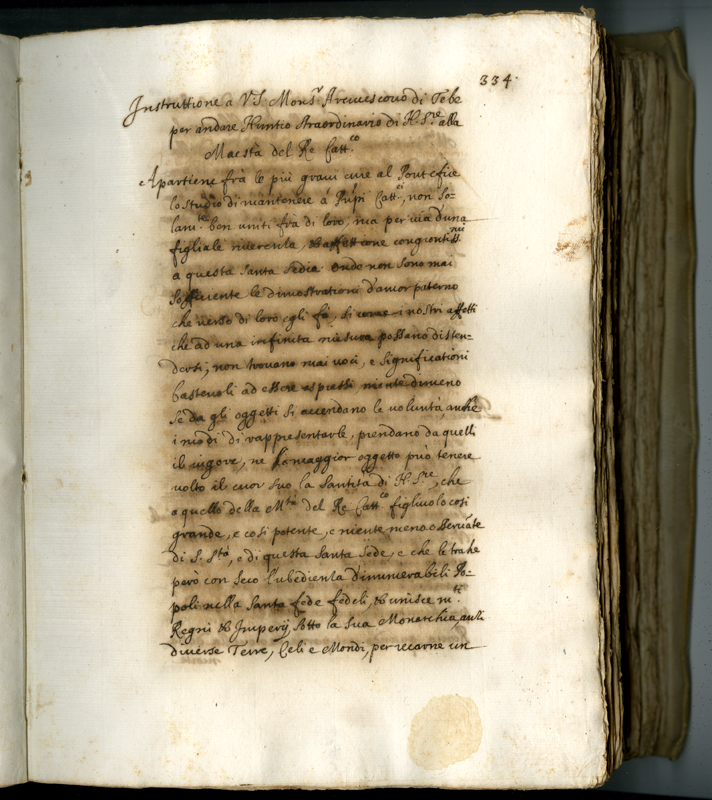 334.
Instruttione a V.S. Mons.r Arciuescouo di Tebe
per andare Nuntio straordinario di N. S.re alla
Maestà del Re Catt.co
Apartiene frà le più graui cure al Pontefice
lo studio di mantenere a Pnpi Catt.ci, non so-
lam.te ben uniti frà di loro, ma per uia d'una
figliale riuerenla, et affettione congiontiss.mi
a questa Santa Sedia. onde non sono mai
sofficiente le dimostrationi d'amor paterno
che uerso di loro egli fà, si come i nostri affetti
che ad una infinita misura possano disten-
dersi; non trouano mai uoci, e significationi
basteuoli ad essere espressi nientedimeno
se da gli oggetti si accendano le uoluntà, anche
i modi di rappresentarle, prendano da quelli
il uigore, ne maggior oggetto può tenere
uolto il cuor suo la Santità di N. S.re, che
a quello della M.tà del Re Catt.co figliuolo così
grande, e così potente, e niente meno osseruãte
di S. S.tà, e di questa Santa Sede, e che le trahe
però con seco l'ubedienla d'innumerabili Po-
poli nella Santa fede fedeli, et unisce m.ti
Regni et Imperij sotto la sua Monarchia, anzi
diuerse Terre, Celi e Mondi, per recarne un